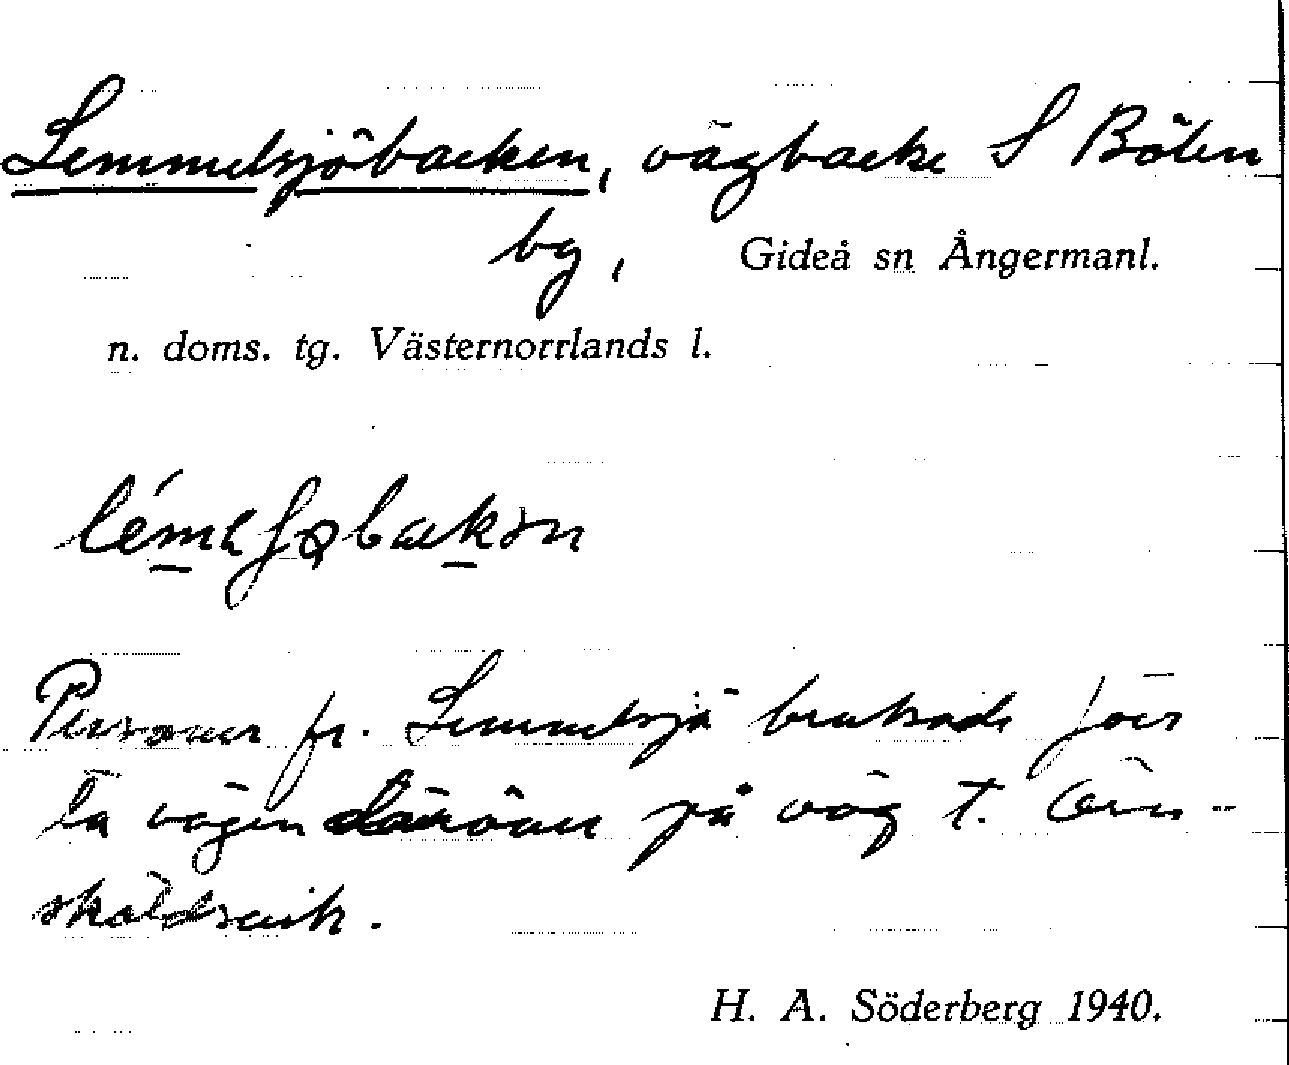 Lemmelsjöbacken, vägbacke S Bölen
bg, Gideå sn Ångermanl.
n. doms. tg. Västernorrlands l.
Personer fr. Lemmelsjö brukade förr
ta vägen däröver på väg t. Örn-
sköldsvik.
H. A. Söderberg 1940.